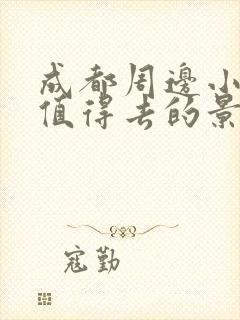 成都周邊小
值得去的景
寇勤